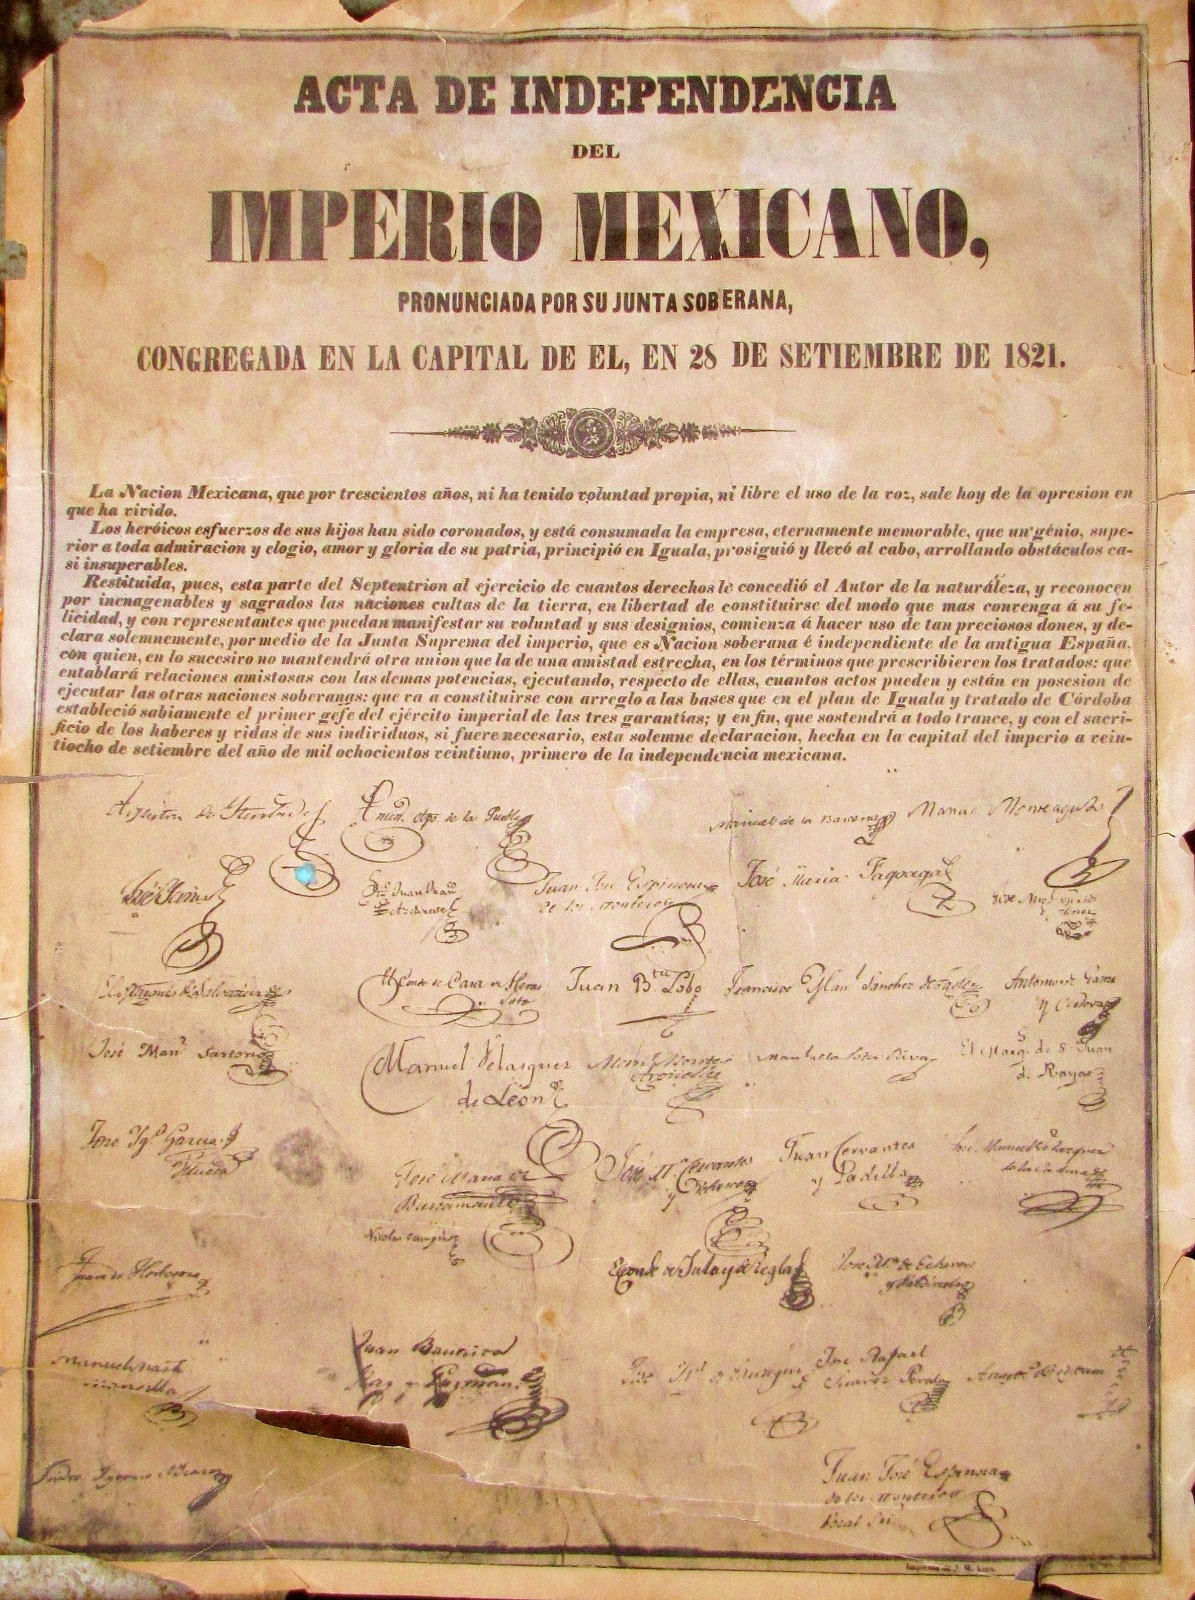 ACTA DE INDEPENDENCIA
DEL
IMPERIO MEXICANO,
PRONUNCIADA POR SU JUNTA SOBERANA,
CONGREGADA EN LA CAPITAL DE EL, EN 28 DE SETIEMBRE DE 1821.
La Nacion Mexicana, que por trescientos años, ni ha tenido voluntad propia, ni libre el uso de la voz, sale hoy de la opresion en
que ha vivido.
Los heróicos esfuerzos de sus hijos han sido coronados, y está consumada la empresa, eternamente memorable, que un génio, supe-
rior a toda admiracion y elogio, amor y gloria de su patria, principió en Iguala, prosiguió y llevó al cabo, arrollando obstáculos ca-
si insuperables.
Restituida, pues, esta parte del Septentrion al ejercicio de cuantos derechos le concedió el Autor de la naturaleza, y reconocen
por inenagenables y sagrados las naciones cultas de la tierra, en libertad de constituirse del modo que mas convenga á su fe-
licidad, y con representantes que puedan manifestar su voluntad y sus designios, comienza á hacer uso de tan preciosos dones, y de-
clara solemnemente, por medio de la Junta Suprema del imperio, que es Nacion soberana é independiente de la antigua España,
con quien, en lo sucesivo no mantendrá otra union que la de una amistad estrecha, en los términos que prescribieren los tratados: que
entablará relaciones amistosas con las demas potencias, ejecutando, respecto de ellas, cuantos actos pueden y están en posesion de
ejecutar las otras naciones soberanas: que va a constituirse con arreglo a las bases que en el plan de Iguala y tratado de Córdoba
estableció sabiamente el primer gefe del ejército imperial de las tres garantías; y en fin, que sostendrá a todo trance, y con el sacri-
ficio de los haberes y vidas de sus individuos, si fuere necesario, esta solemne declaracion, hecha en la capital del imperio a vein-
tiocho de setiembre del año de mil ochocientos veintiuno, primero de la independencia mexicana.
Agustin de Iturbide Obpo. de la Puebla Manuel de la Barcena Manuel Monteagudo
Juan José Espinosa José Maria Fagoaga
de los Monteros
Conde de Casa de Heras Juan Bta Lobo Francisco Man Sanchez de Tagle Antonio de Gama
Soto y Cordova
José Man Sartorio Manuel Velasquez Manuel Montes El Marq. de S. Juan
de Leon Arguelles de Rayas
José Ygo Garcia Juan Cervantes
Yllueca y Padilla
José Maria de José Ma Cervantes
Bustamante y Velasco
Nicolas Campero
Juan de Horbegoso El Conde de Jala y de Regla José Ma de Echevers
y Valdivielso
Manuel Mart Juan Bautista José Rafael
Mansilla Raz y Guzman Suarez Pereda
Isidro Ignacio Juan José Espinosa
de los Monteros
Vocal